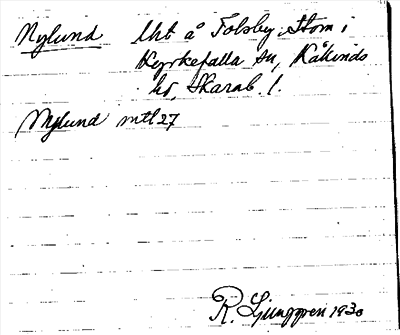 Nylund lht å Tolsby, Stom i
Kyrkefalla sn, Kåkinds
hd, Skarab. l.
Nylund mtl 27
R. Ljunggren 1930